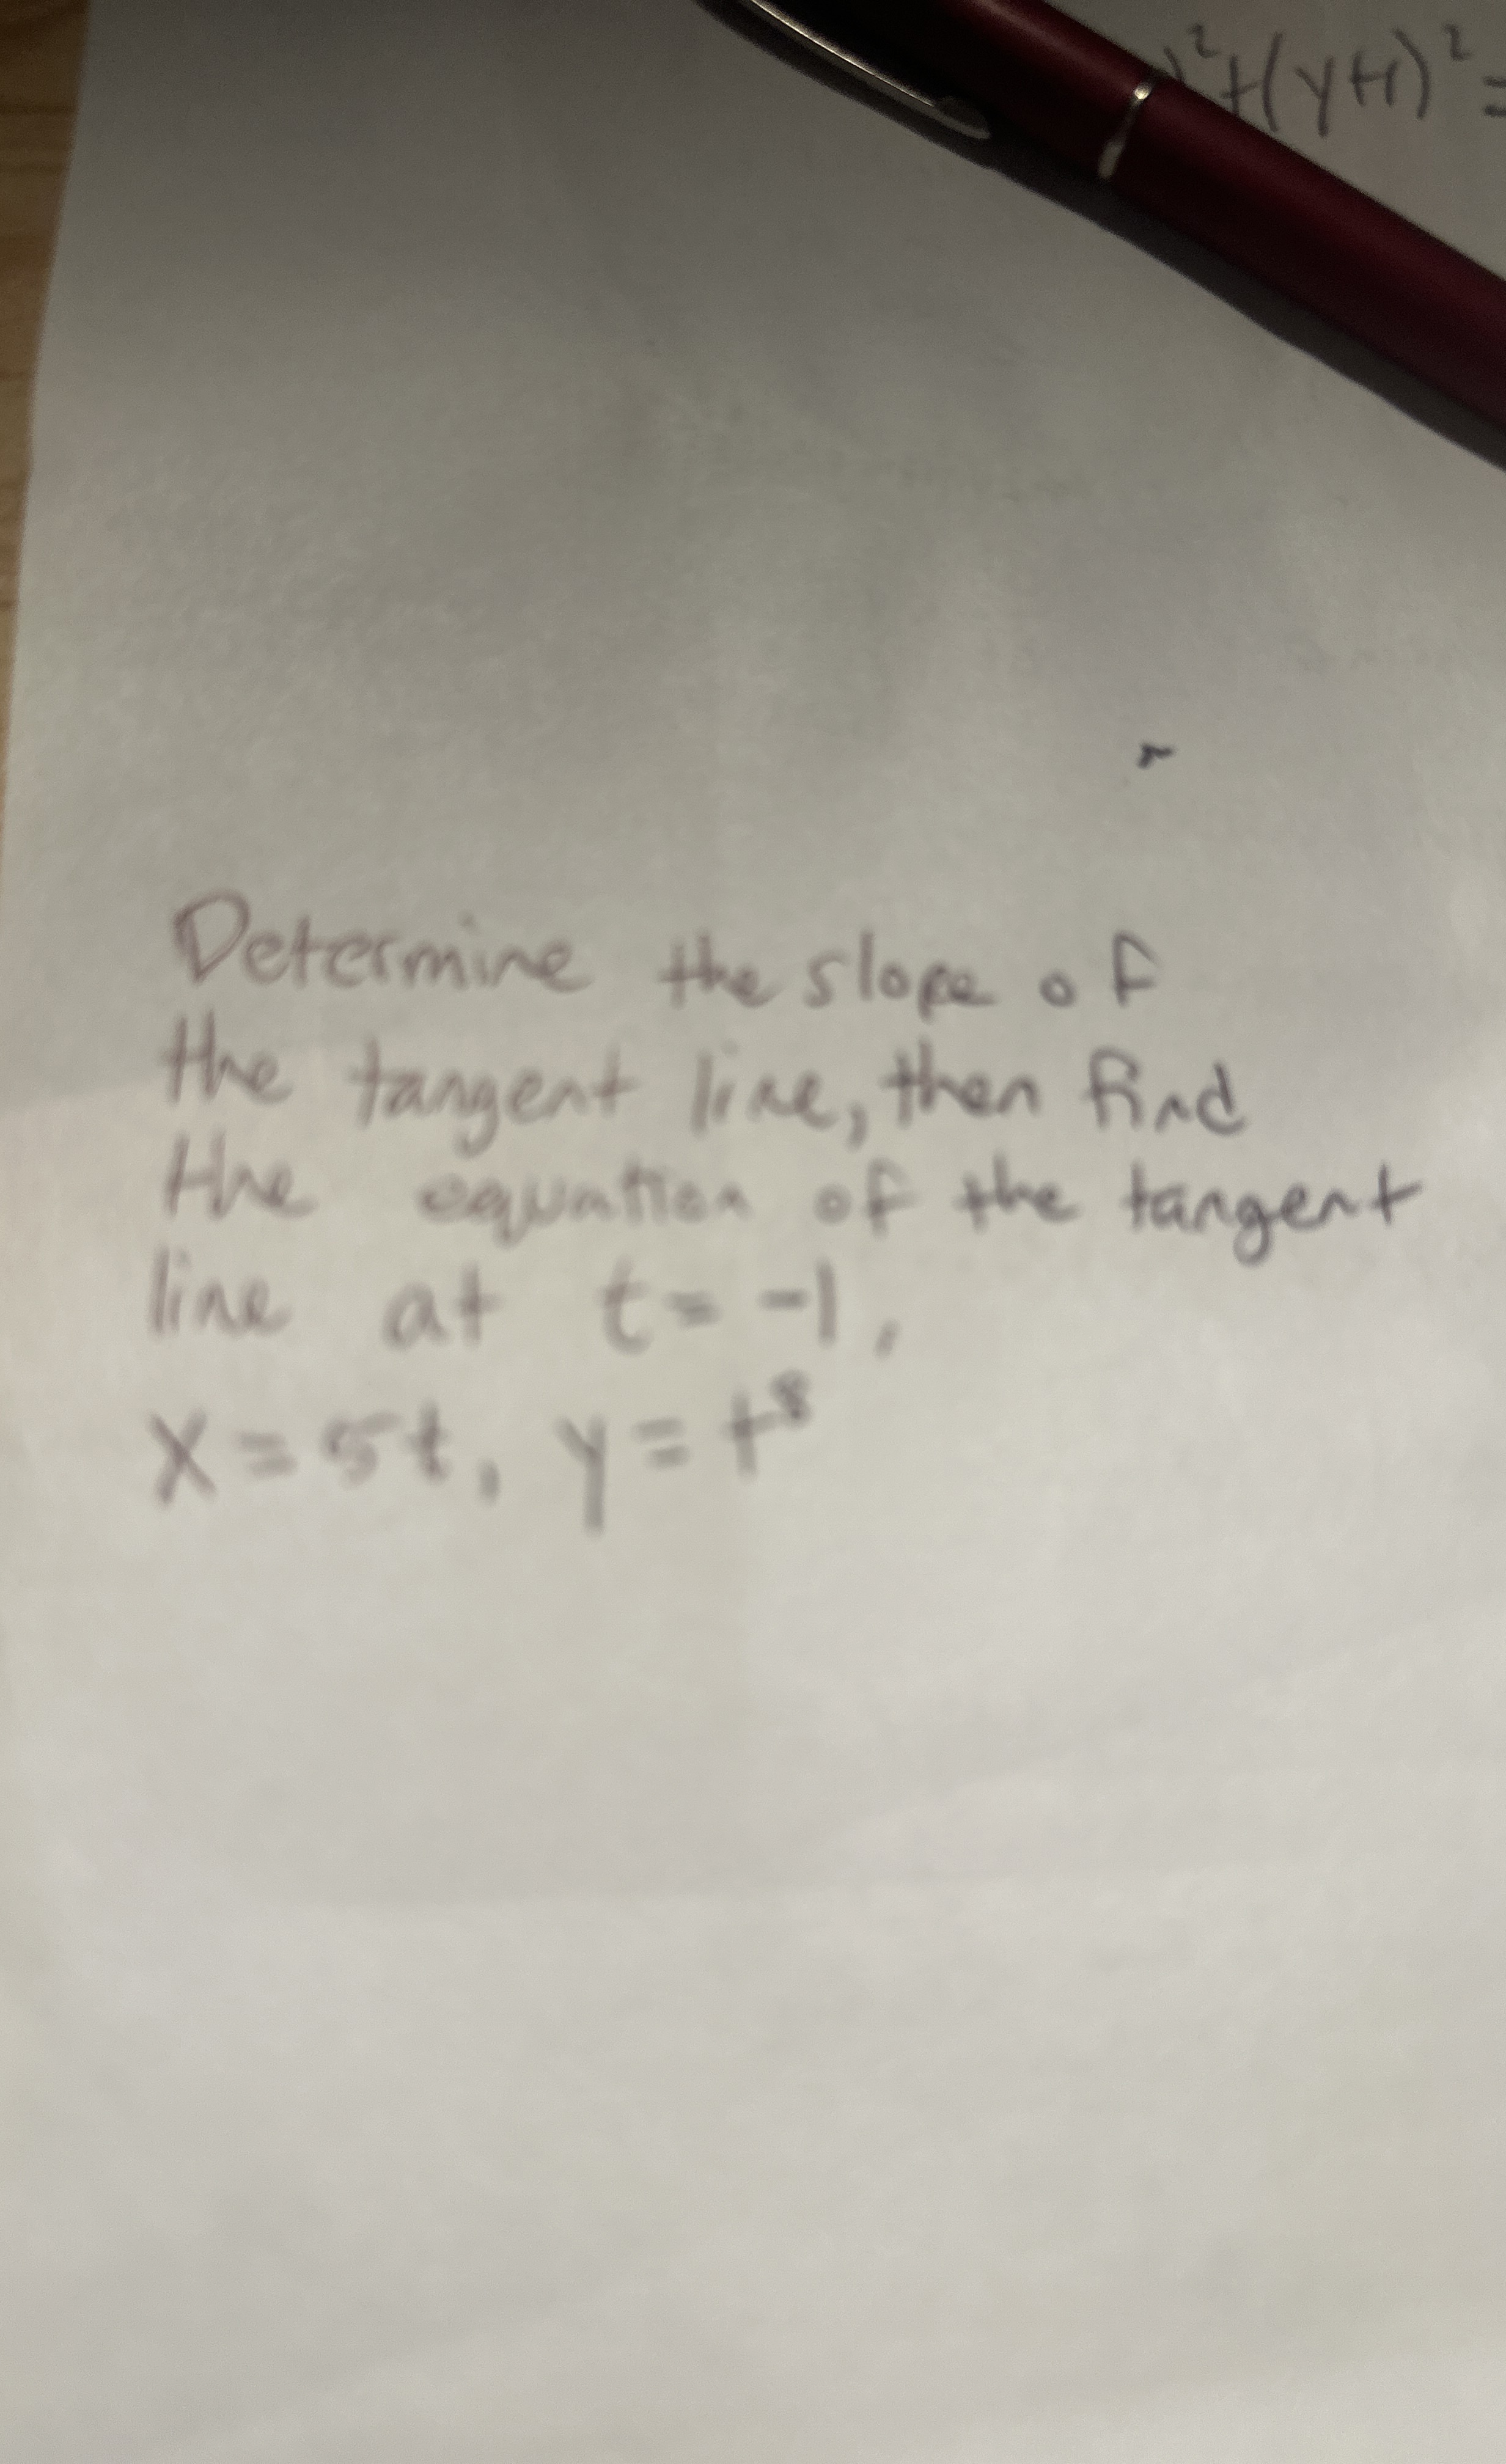 )²+(y+1)²=
Determine the slope of
the tangent line, then find
the equation of the tangent
line at t = -1,
x = 5t, y = t⁸